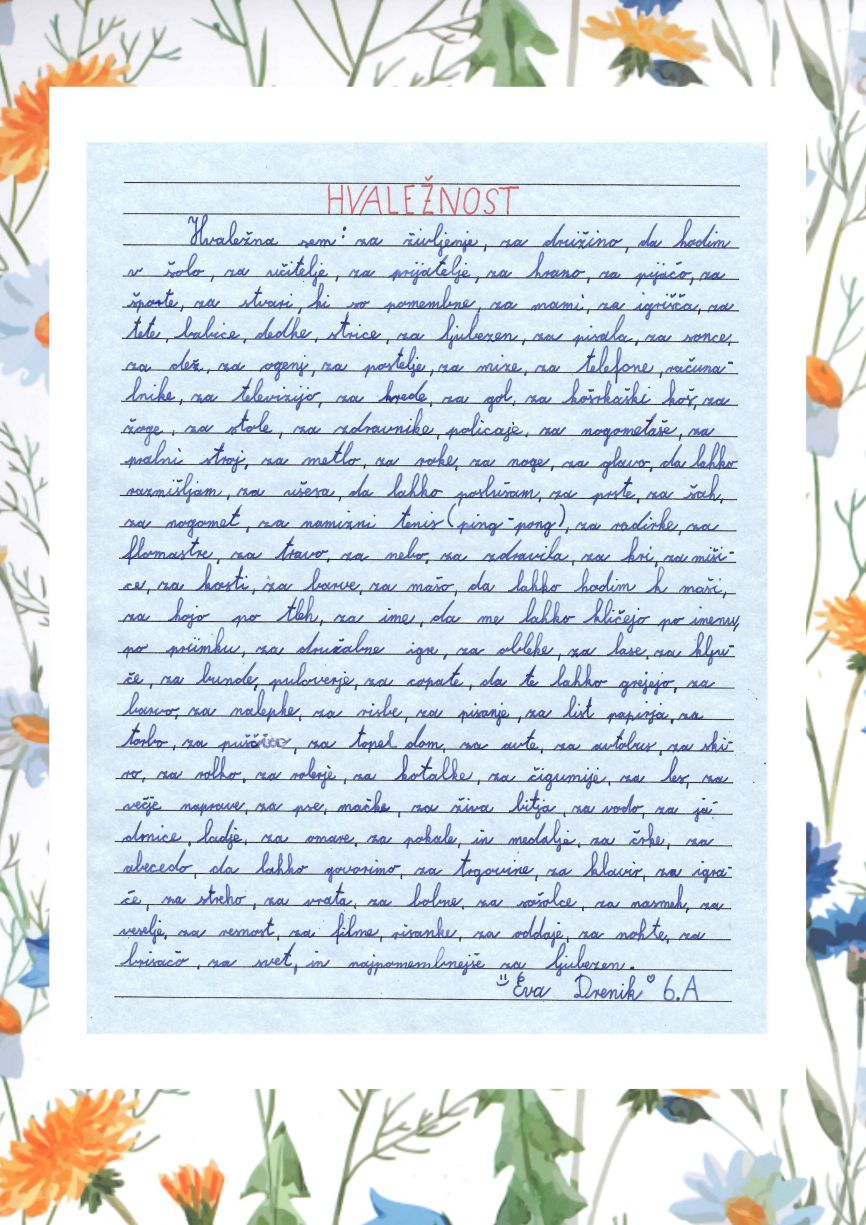 HVALEŽNOST
Hvaležna sem: za življenje, za družino, da hodim
v šolo, za učitelje, za prijatelje, za hrano, za pijačo, za
športe, za stvari, ki so pomembne, za mami, za igrišča, za
tete, babice, dedke, strice, za ljubezen, za pisala, za sonce,
za dež, za ogenj, za postelje, za mize, za telefone, računa-
lnike, za televizijo, za krede, za gol, za košrkaški koš, za
žoge, za stole, za zdravnike, policaje, za nogometaše, za
pralni stroj, za metlo, za roke, za noge, za glavo, da lahko
razmišljam, za ušesa, da lahko poslušam, za prste, za šah,
za nogomet, za namizni tenis (ping-pong), za radirke, za
flomastre, za travo, za nebo, za zdravila, za kri, za miši-
ce, za kosti, za barve, za mašo, da lahko hodim k maši,
za hojo po tleh, za ime, da me lahko kličejo po imenu,
po priimku, za družabne igre, za obleke, za lase, za klju-
če, za bunde, puloverje, za copate, da te lahko grejejo, za
barvo, za nalepke, za risbe, za pisanje, za list papirja, za
torbo, za za topel dom, za avte, za avtobus, za ski-
ro, za rolko, za rolerje, za kotalke, za čigumije, za les, za
večje naprave, za pse, mačke, za živa bitja, za vodo, za ja-
drnice, ladje, za omare, za pokale, in medalje, za črke, za
abecedo, da lahko govorimo, za trgovine, za klavir, za igra-
če, za streho, za vrata, za bobne, za sošolce, za nasmeh, za
veselje, za resnost, za filme, risanke, za oddaje, za nohte, za
brisačo, za svet, in najpomembnejše za ljubezen.
Eva Drenik 6.A